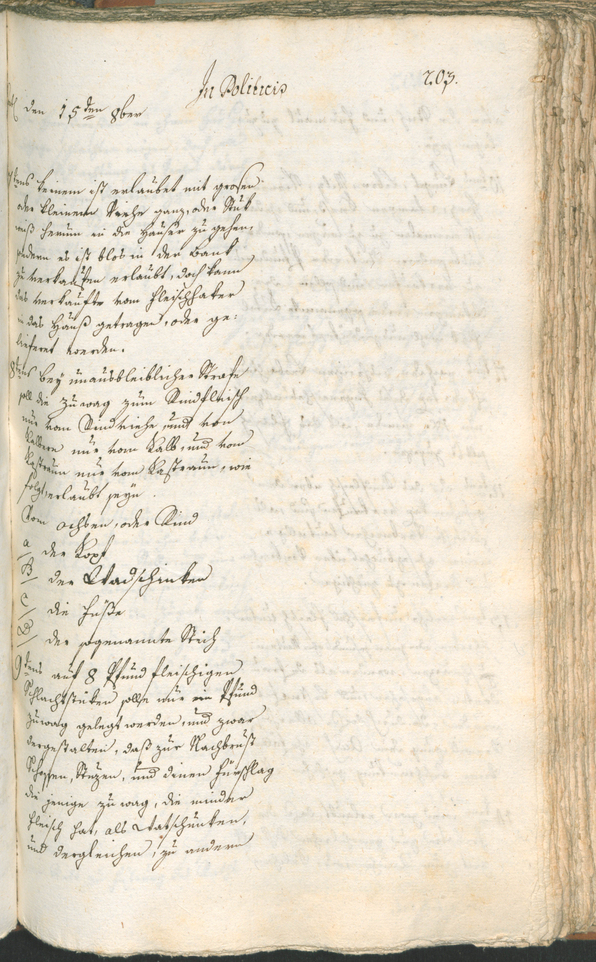 In Politicis
203.
den 15ten 8ber
7tens keinem ist erlaubet mit grosen
oder kleinem Viehe ganz, oder Stuk
weiß herum in die Häuser zu gehen,
sondern es ist blos in der Bank
zu verkaufen erlaubt, doch kann
das verkaufte vom Fleischhaker
in das Hauß getragen, oder ge:
lieferet werden.
8tens bey unausbleiblicher Strafe
soll die Zuwag zum Rindfleisch
nur vom Rindviehe, und von
Kälbern nur vom Kalb, und vom
Kastraun nur vom Kastraun, wie
folgt erlaubt seyn.
Vom ochsen, oder Rind
a der Kopf
B der Wadschinken
C die Füße
D der sogenannte Stich
9tens auf 8 Pfund fleischigen
Schlachtstuken solle nur ein Pfund
Zuwag gelegt werden, und zwar
dergestalten, daß zur Nachbrust
Stuzen, und denen Fürschlag
die jenige zuwag, die minder
Fleisch hat, als Watschunken,
und dergleichen, zu andern